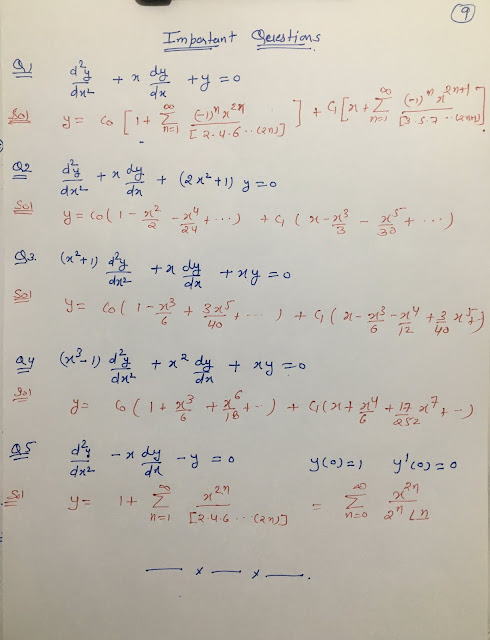 9
Important Questions
Q1 d²y/dx² + x dy/dx + y = 0
Sol y = c₀ [ 1 + ∞ Σ n=1 (-1)ⁿ x²ⁿ / [2·4·6··(2n)] ] + c₁ [ x + ∞ Σ n=1 (-1)ⁿ x²ⁿ⁺¹ / [3·5·7··(2n+1)] ]
Q2 d²y/dx² + x dy/dx + (2x²+1) y = 0
Sol y = c₀ ( 1 - x²/2 - x⁴/24 + ··· ) + c₁ ( x - x³/3 - x⁵/30 + ··· )
Q3. (x²+1) d²y/dx² + x dy/dx + xy = 0
Sol y = c₀ ( 1 - x³/6 + 3x⁵/40 + ··· ) + c₁ ( x - x³/6 - x⁴/12 + 3/40 x⁵ + )
Q4 (x³-1) d²y/dx² + x² dy/dx + xy = 0
Sol y = c₀ ( 1 + x³/6 + x⁶/18 + ·· ) + c₁ ( x + x⁴/6 + 17/252 x⁷ + ·· )
Q5 d²y/dx² - x dy/dx - y = 0 y(0) = 1 y'(0) = 0
Sol y = 1 + ∞ Σ n=1 x²ⁿ / [2·4·6···(2n)] = ∞ Σ n=0 x²ⁿ / 2ⁿ ⌊n
— x — x —.